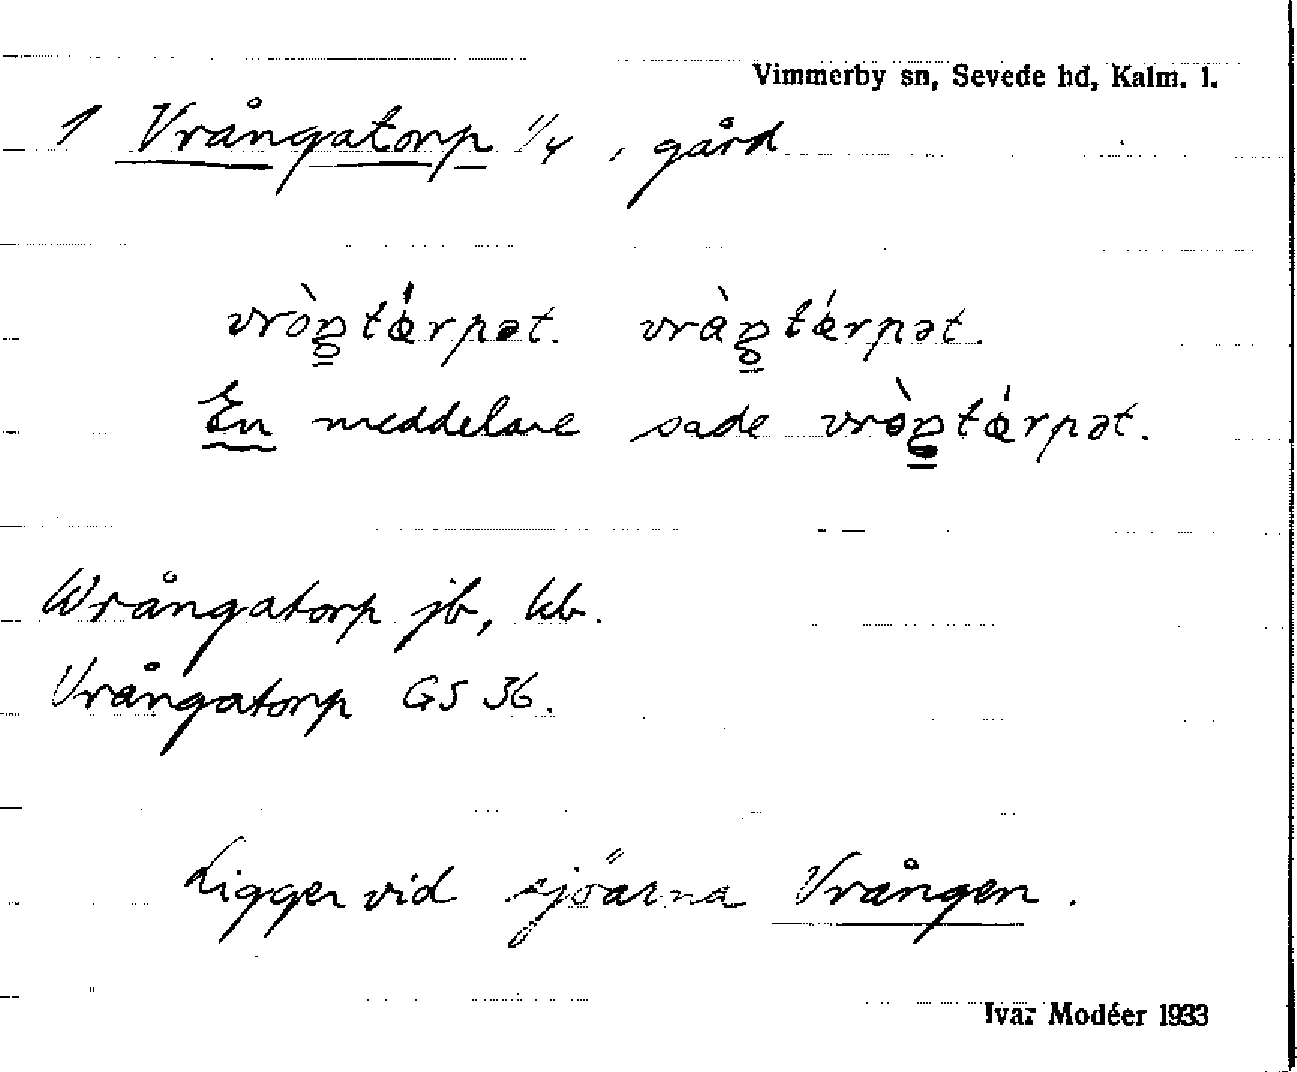 Vimmerby sn, Sevede hd, Kalm. l.
1 Vrångatorp 1/4, gård
vròŋ̥tǽrpət. vràŋ̥tǽrpət.
En meddelare sade vròŋ̥tǽrpət.
Wrångatorp jb, kb.
Vrångatorp GS 36.
Ligger vid sjöarna Vrången.
Ivar Modéer 1933